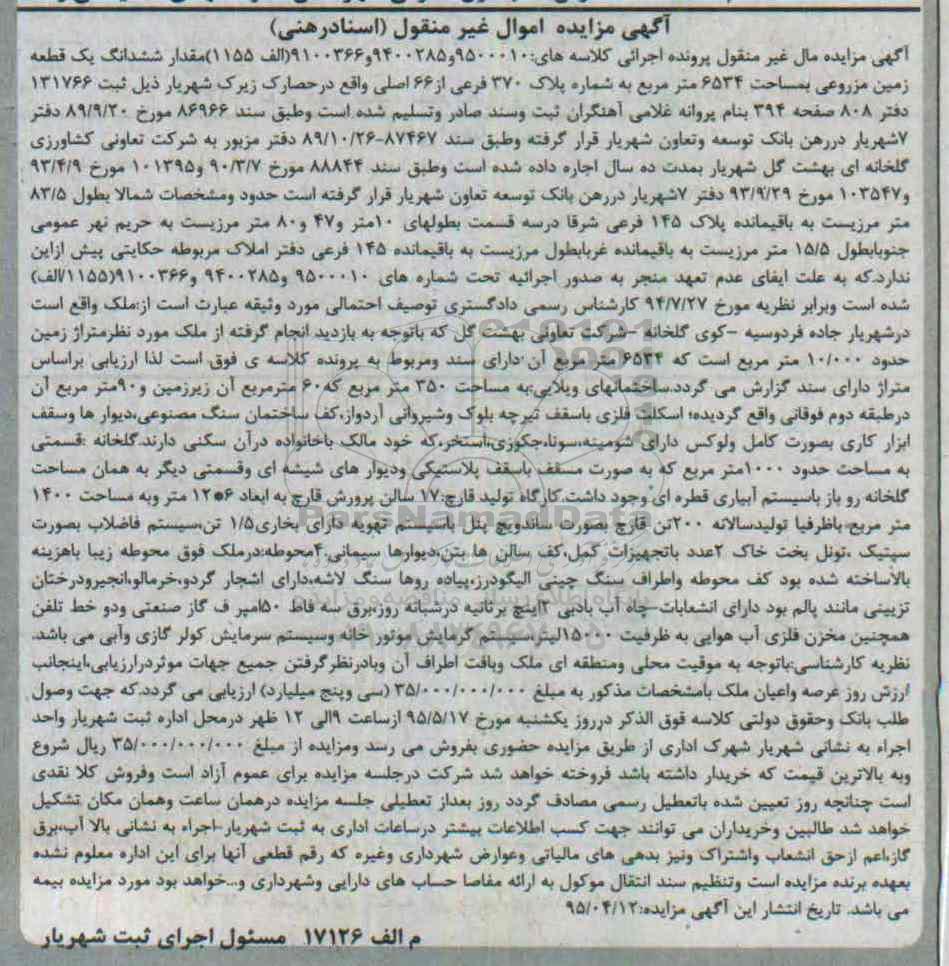 آگهی مزایده اموال غیر منقول (اسنادرهنی)
آگهی مزایده مال غیر منقول پرونده اجرائی کلاسه های:۹۵۰۰۰۱۰و۹۴۰۰۲۸۵و۹۱۰۰۳۶۶(الف ۱۱۵۵)مقدار ششدانگ یک قطعه
زمین مزروعی بمساحت ۶۵۳۴ متر مربع به شماره پلاک ۳۷۰ فرعی از۶۶ اصلی واقع درحصارک زیرک شهریار ذیل ثبت ۱۳۱۷۶۶
دفتر ۸۰۸ صفحه ۳۹۴ بنام پروانه غلامی آهنگران ثبت وسند صادر وتسلیم شده است وطبق سند ۸۶۹۶۶ مورخ ۸۹/۹/۲۰ دفتر
۷شهریار دررهن بانک توسعه وتعاون شهریار قرار گرفته وطبق سند ۸۷۴۶۷-۸۹/۱۰/۲۶ دفتر مزبور به شرکت تعاونی کشاورزی
گلخانه ای بهشت گل شهریار بمدت ده سال اجاره داده شده است وطبق سند ۸۸۸۴۴ مورخ ۹۰/۳/۷ و۱۰۱۳۹۵ مورخ ۹۳/۴/۹
و۱۰۳۵۴۷ مورخ ۹۳/۹/۲۹ دفتر ۷شهریار دررهن بانک توسعه تعاون شهریار قرار گرفته است حدود ومشخصات شمالا بطول ۸۳/۵
متر مرزیست به باقیمانده پلاک ۱۴۵ فرعی شرقا درسه قسمت بطولهای ۱۰متر و۴۷ و۸۰ متر مرزیست به حریم نهر عمومی
جنوبابطول ۱۵/۵ متر مرزیست به باقیمانده غربابطول مرزیست به باقیمانده ۱۴۵ فرعی دفتر املاک مربوطه حکایتی پیش ازاین
ندارد.که به علت ایفای عدم تعهد منجر به صدور اجرائیه تحت شماره های ۹۵۰۰۰۱۰ و۹۴۰۰۲۸۵ و۹۱۰۰۳۶۶(۱۱۵۵/الف)
شده است وبرابر نظریه مورخ ۹۴/۷/۲۷ کارشناس رسمی دادگستری توصیف احتمالی مورد وثیقه عبارت است از:ملک واقع است
درشهریار جاده فردوسیه -کوی گلخانه -شرکت تعاونی بهشت گل که باتوجه به بازدید انجام گرفته از ملک مورد نظرمتراژ زمین
حدود ۱۰/۰۰۰ متر مربع است که ۶۵۳۴ متر مربع آن دارای سند ومربوط به پرونده کلاسه ی فوق است لذا ارزیابی براساس
متراژ دارای سند گزارش می گردد.ساختمانهای ویلایی:به مساحت ۳۵۰ متر مربع که۶۰ مترمربع آن زیرزمین و۹۰متر مربع آن
درطبقه دوم فوقانی واقع گردیده؛ اسکلت فلزی باسقف تیرچه بلوک وشیروانی آردواز،کف ساختمان سنگ مصنوعی،دیوار ها وسقف
ابزار کاری بصورت کامل ولوکس دارای شومینه،سونا،جکوزی،استخر،که خود مالک باخانواده درآن سکنی دارند.گلخانه :قسمتی
به مساحت حدود ۱۰۰۰متر مربع که به صورت مسقف باسقف پلاستیکی ودیوار های شیشه ای وقسمتی دیگر به همان مساحت
گلخانه رو باز باسیستم آبیاری قطره ای وجود داشت.کارگاه تولید قارچ:۱۷ سالن پرورش قارچ به ابعاد ۶*۱۲ متر وبه مساحت ۱۴۰۰
متر مربع باظرفیا تولیدسالانه ۲۰۰تن قارچ بصورت ساندویچ پنل باسیستم تهویه دارای بخاری۱/۵ تن،سیستم فاضلاب بصورت
سپتیک ،تونل بخت خاک ۲عدد باتجهیزات کمل،کف سالن ها بتن،دیوارها سیمانی.۴محوطه:درملک فوق محوطه زیبا باهزینه
بالاساخته شده بود کف محوطه واطراف سنگ چینی الیگودرز،پیاده روها سنگ لاشه،دارای اشجار گردو،خرمالو،انجیرودرختان
تزیینی مانند پالم بود دارای انشعابات-چاه آب بادبی ۳اینچ برثانیه درشبانه روز،برق سه فاط ۵۰امپر ف گاز صنعتی ودو خط تلفن
همچنین مخزن فلزی آب هوایی به ظرفیت ۱۵۰۰۰لیتر،سیستم گرمایش موتور خانه وسیستم سرمایش کولر گازی وآبی می باشد.
نظریه کارشناسی:باتوجه به موقیت محلی ومنطقه ای ملک وبافت اطراف آن وبادرنظرگرفتن جمیع جهات موثردرارزیابی،اینجانب
ارزش روز عرصه واعیان ملک بامشخصات مذکور به مبلغ ۳۵/۰۰۰/۰۰۰/۰۰۰ (سی وپنج میلیارد) ارزیابی می گردد.که جهت وصول
طلب بانک وحقوق دولتی کلاسه فوق الذکر درروز یکشنبه مورخ ۹۵/۵/۱۷ ازساعت ۹الی ۱۲ ظهر درمحل اداره ثبت شهریار واحد
اجراء به نشانی شهریار شهرک اداری از طریق مزایده حضوری بفروش می رسد ومزایده از مبلغ ۳۵/۰۰۰/۰۰۰/۰۰۰ ریال شروع
وبه بالاترین قیمت که خریدار داشته باشد فروخته خواهد شد شرکت درجلسه مزایده برای عموم آزاد است وفروش کلا نقدی
است چنانچه روز تعیین شده باتعطیل رسمی مصادف گردد روز بعداز تعطیلی جلسه مزایده درهمان ساعت وهمان مکان تشکیل
خواهد شد طالبین وخریداران می توانند جهت کسب اطلاعات بیشتر درساعات اداری به ثبت شهریار-اجراء به نشانی بالا آب،برق
گاز،اعم ازحق انشعاب واشتراک ونیز بدهی های مالیاتی وعوارض شهرداری وغیره که رقم قطعی آنها برای این اداره معلوم نشده
بعهده برنده مزایده است وتنظیم سند انتقال موکول به ارائه مفاصا حساب های دارایی وشهرداری و...خواهد بود مورد مزایده بیمه
می باشد. تاریخ انتشار این آگهی مزایده:۹۵/۰۴/۱۲
م الف ۱۷۱۲۶ مسئول اجرای ثبت شهریار
ParsNamadData